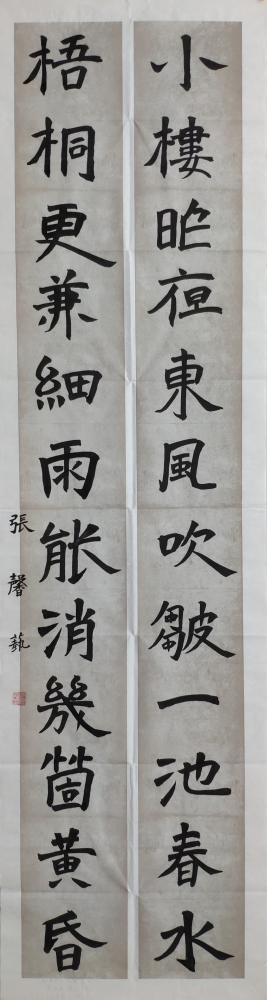 小樓昨夜東風吹皺一池春水
梧桐更兼細雨能消幾箇黃昏
張馨藝